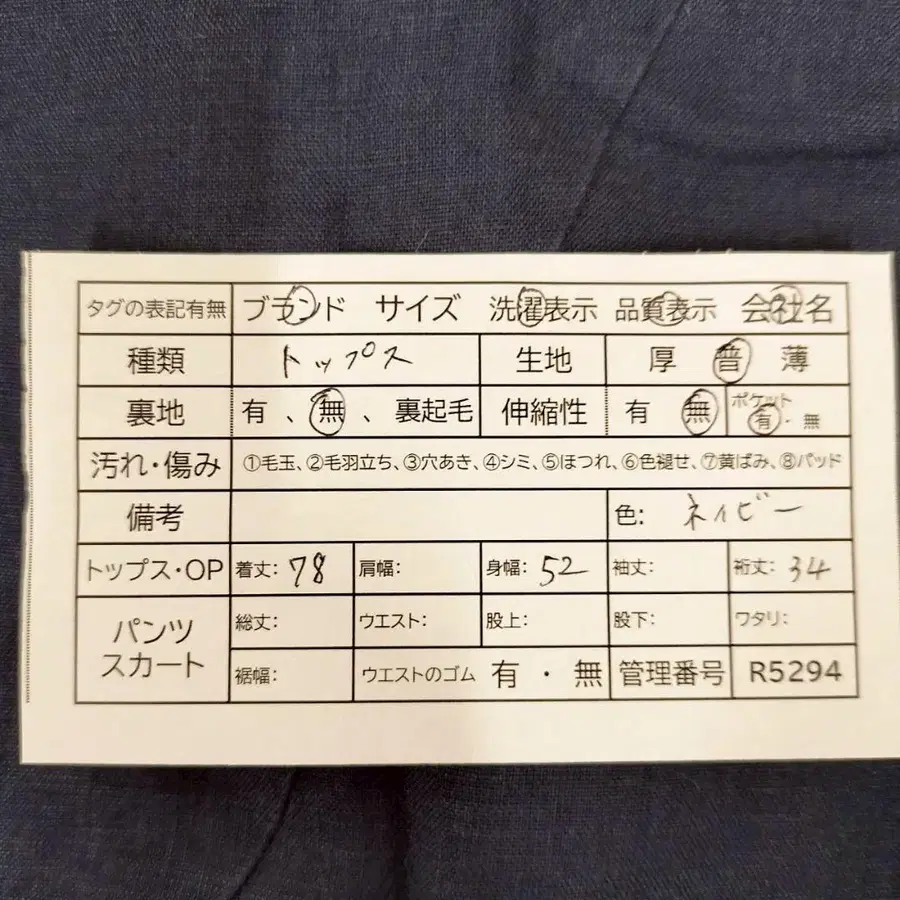 タグの表記有無 ブランド サイズ 洗濯表示 品質表示 会社名
種類 トップス 生地 厚 普 薄
裏地 有、無、裏起毛 伸縮性 有 無 ポケット 有・無
汚れ・傷み ①毛玉、②毛羽立ち、③穴あき、④シミ、⑤ほつれ、⑥色褪せ、⑦黄ばみ、⑧パッド
備考 色: ネイビー
トップス・OP 着丈: 78 肩幅: 身幅: 52 袖丈: 裄丈: 34
パンツ スカート 総丈: ウエスト: 股上: 股下: ワタリ:
裾幅: ウエストのゴム 有・無 管理番号 R5294